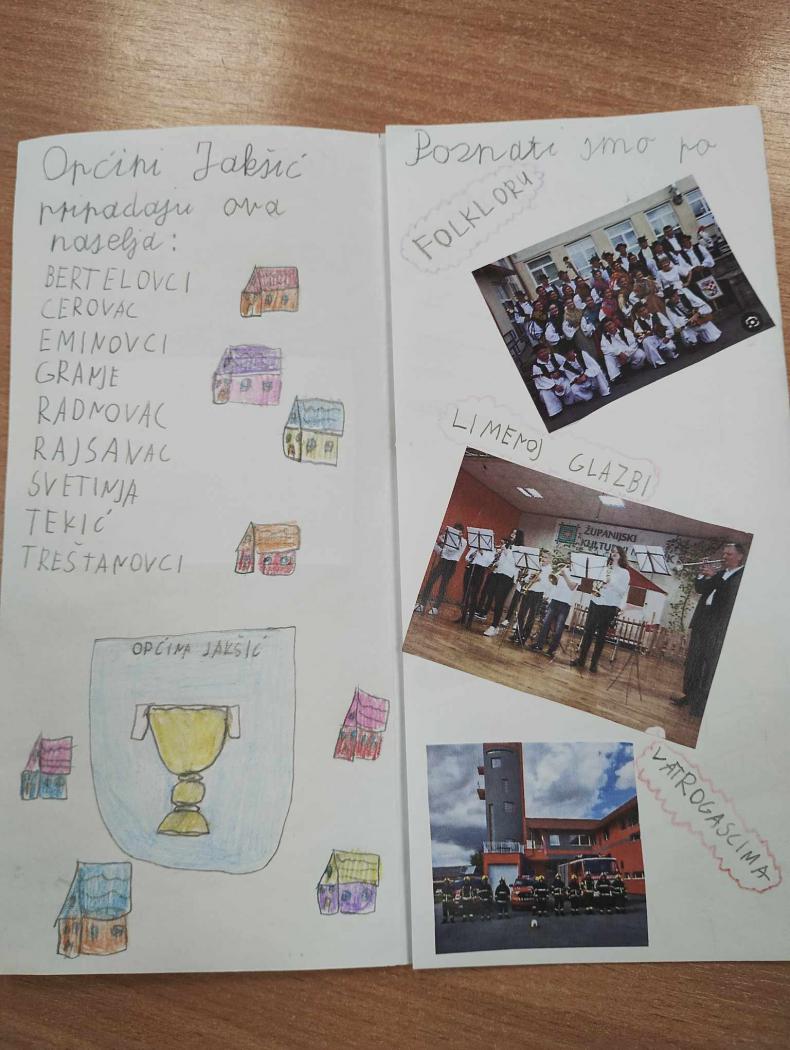 Općini Jakšić
pripadaju ova
naselja:
BERTELOVCI
CEROVAC
EMINOVCI
GRANJE
RADNOVAC
RAJSAVAC
SVETINJA
TEKIĆ
TREŠTANOVCI
OPĆINA JAKŠIĆ
Poznati smo po
FOLKLORU
LIMENOJ GLAZBI
ŽUPANIJSKI
KULTURNI
VATROGASCIMA